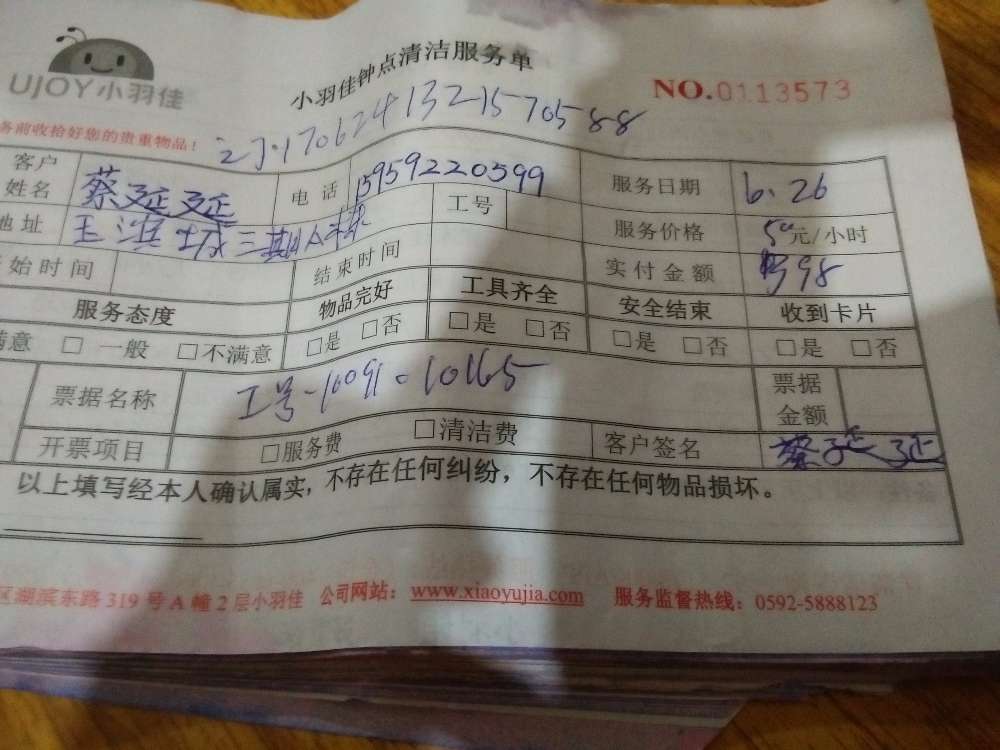 UJOY小羽佳
小羽佳钟点清洁服务单
NO.0113573
务前收拾好您的贵重物品!
1706241321570588
客户姓名 蔡延延 电话 15959220599 服务日期 6.26
地址 三期 工号 服务价格 50元/小时
始时间 结束时间 实付金额 98
服务态度 物品完好 工具齐全 安全结束 收到卡片
满意 □ 一般 □不满意 □是 □否 □是 □否 □是 □否 □是 □否
票据名称 工号-10091 10165 票据金额
开票项目 □服务费 □清洁费 客户签名 蔡延延
以上填写经本人确认属实,不存在任何纠纷,不存在任何物品损坏。
区湖滨东路319号A幢2层小羽佳 公司网站:www.xiaoyujia.com 服务监督热线:0592-5888123